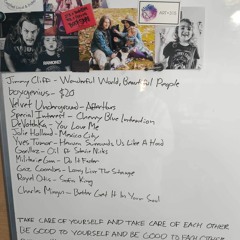 Jimmy Cliff - Wonderful World, Beautiful People
boygenius - $20
Velvet Underground - Afterhours
Special Interest - Cherry Blue Intention
DeVotchKa - You Love Me
Jolie Holland - Mexico City
Yves Tumor - Heaven Surrounds Us Like A Hood
Gorillaz - Oil ft Stevie Nicks
Militarie Gun - Do It Faster
Gaz Coombes - Long Live The Strange
Royal Otis - Sofa King
Charles Mingus - Better Get It In Your Soul
TAKE CARE OF YOURSELF AND TAKE CARE OF EACH OTHER
BE GOOD TO YOURSELF AND BE GOOD TO EACH OTHER